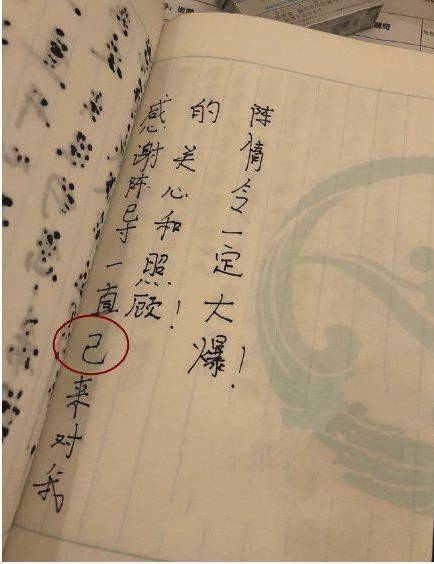 感谢陈导一直己来对我
的关心和照顾！
陈情令一定大爆！